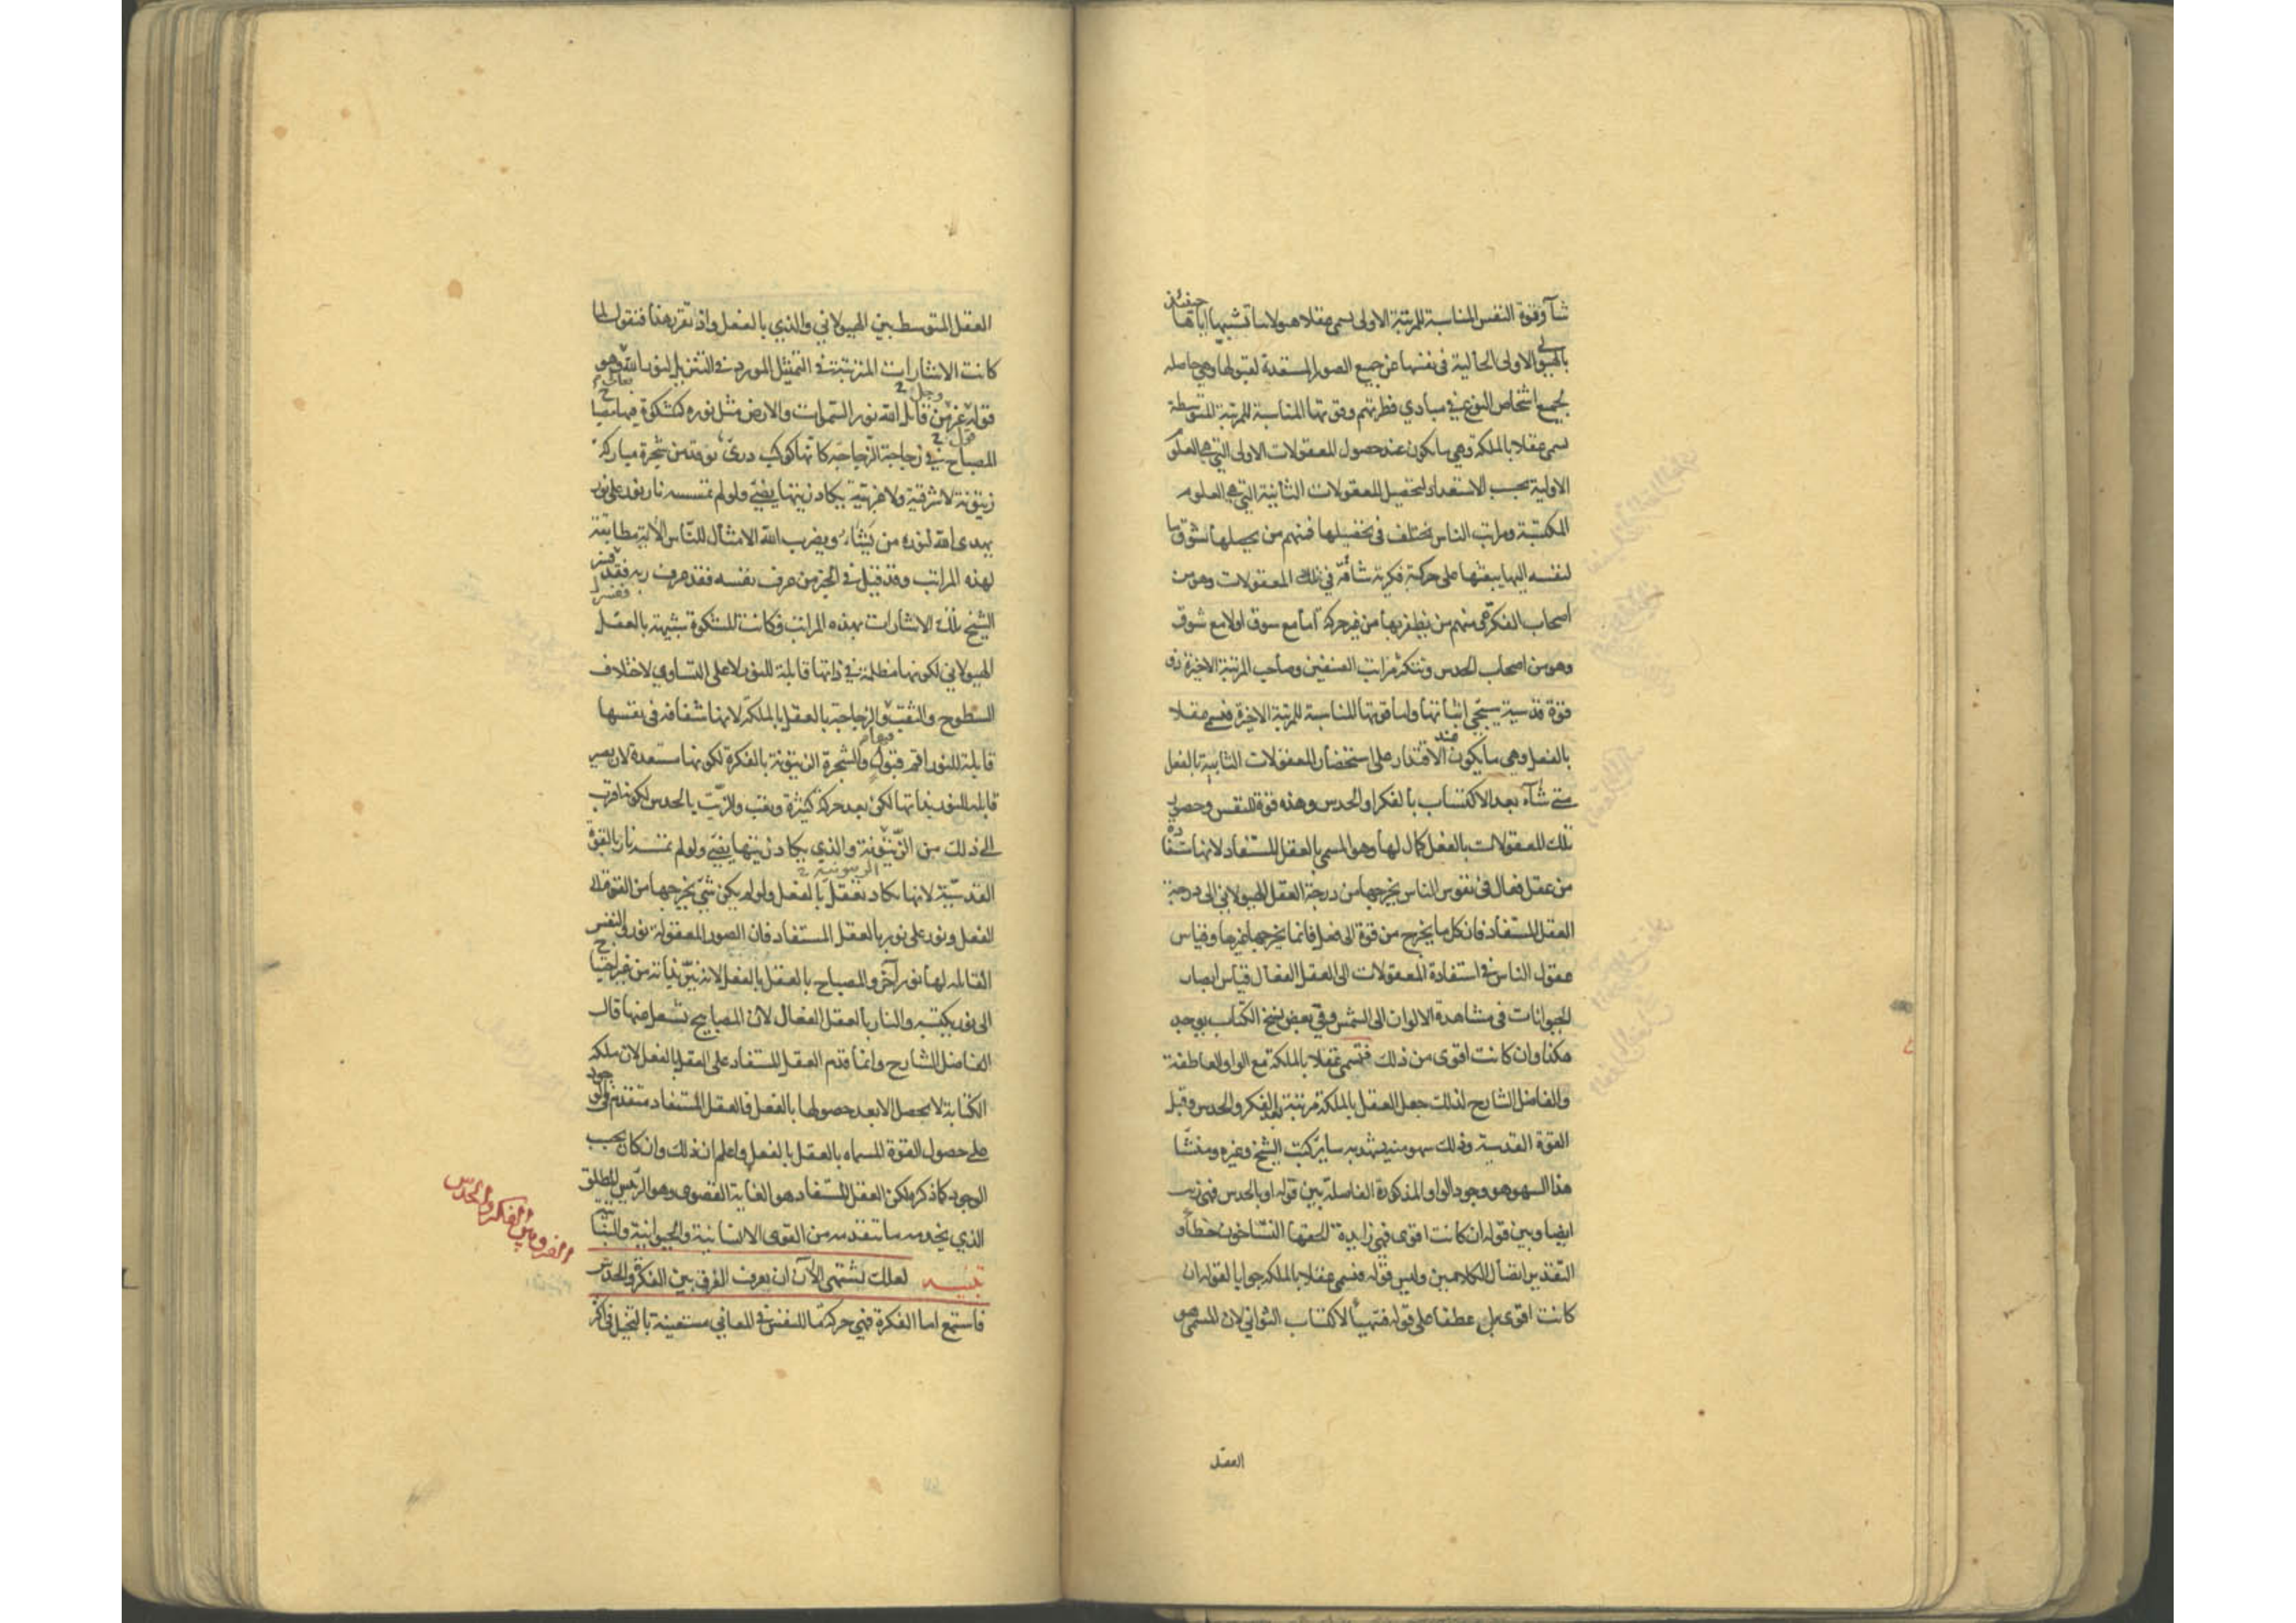 شآ وقوة النفس المناسبة للمرتبة الاولى يسمى عقلا هيولانيا تشبيها اياها حينئذ
بالهيولى الاولى الخالية في نفسها عن جميع الصور المستعدة لقبولها وهي حاصلة
لجميع اشخاص النوع في مبادي فطرتهم وقوتها المناسبة للمرتبة المتوسطة
يسمى عقلا بالملكة وهي ما يكون عند حصول المعقولات الاولى التي هي العلوم
الاولية بحسب الاستعداد لتحصيل المعقولات الثانية التي هي العلوم
المكتسبة ومراتب الناس يختلف في تحصيلها فمنهم من يحصلها بشوق ما
لنفسه اليها يبعثها على حركة فكرية شاقة في تلك المعقولات وهو من
اصحاب الفكرة ومنهم من يظفر بها من غير حركة اما مع شوق او لا مع شوق
وهو من اصحاب الحدس وتتكثر مراتب الصنفين وصاحب المرتبة الاخيرة ذو
قوة قدسية سيجي اثباتها واما قوتها المناسبة للمرتبة الاخيرة فتسمى عقلا
بالفعل وهي ما يكون عند الاقتدار على استحضار المعقولات الثانية بالفعل
متى شآء بعد الاكتساب بالفكر او الحدس وهذه قوة للنفس وحضور
تلك المعقولات بالفعل كمال لها وهو المسمى بالعقل المستفاد لانها مستفادة
من عقل فعال في نفوس الناس يخرجها من درجة العقل الهيولاني الى درجة
العقل المستفاد فان كل ما يخرج من قوة الى فعل فانما يخرجها غيرها وقياس
عقول الناس في استفادة المعقولات الى العقل الفعال قياس ابصار
الحيوانات في مشاهدة الالوان الى الشمس وفي بعض نسخ الكتاب يوجد
هكذا وان كانت اقوى من ذلك فتسمى عقلا بالملكة مع الواو العاطفة
والفاضل الشارح لذلك جعل العقل بالملكة مرتبة بعد الفكر والحدس وقبل
القوة القدسية وذلك سهو منه يشهد به ساير كتب الشيخ وغيره ومنشأ
هذا السهو هو وجود الواو المذكورة الفاصلة بين قوله او بالحدس فهي زيت
ايضا وبين قوله ان كانت اقوى فهي زايدة الحقها النساخون خطأ و
التقدير اتصال الكلامين وليس قوله فتسمى عقلا بالملكة جوابا لقوله ان
كانت اقوى بل عطفا على قوله فتهيأ الاكتساب الثواني لان المسمى هو
العقل
العقل المتوسط بين الهيولاني والذي بالفعل واذ تقرر هذا فنقول لما
كانت الاشارات المترتبة في التمثيل المورد في التنزيل لنور الله تعالى وهو
قوله عز وجل من قائل الله نور السموات والارض مثل نوره كمشكوة فيها مصباح
المصباح في زجاجة الزجاجة كانها كوكب دري توقد من شجرة مباركة
زيتونة لا شرقية ولا غربية يكاد زيتها يضيء ولو لم تمسسه نار نور على نور
يهدي الله لنوره من يشاء ويضرب الله الامثال للناس الآية مطابقة
لهذه المراتب وقد قيل في الخبر من عرف نفسه فقد عرف ربه فقد فسر
الشيخ تلك الاشارات بهذه المراتب فكانت المشكوة شبيهة بالعقل
الهيولاني لكونها مظلمة في ذاتها قابلة للنور لا على التساوي لاختلاف
السطوح والثقب والزجاجة بالعقل بالملكة لانها شفافة في نفسها
قابلة للنور اتم قبول والشجرة الزيتونة بالفكرة لكونها مستعدة لان يصير
قابلة للنور بذاتها لكن بعد حركة كثيرة وتعب والزيت بالحدس لكونه اقرب
الى ذلك من الزيتونة والذي يكاد زيتها يضيء ولو لم تمسسه نار بالقوة
القدسية لانها يكاد تعقل بالفعل ولو لم يكن شيء يخرجها من القوة الى
الفعل ونور على نور بالعقل المستفاد فان الصور المعقولة نور والنفس
القابلة لها نور آخر والمصباح بالعقل بالفعل لانه نير بذاته من غير احتياج
الى نور يكتسبه والنار بالعقل الفعال لان المصابيح تشعل منها قال
الفاضل الشارح وانما قدم العقل المستفاد على العقل بالفعل لان ملكة
الكتابة لا يحصل الا بعد حصولها بالفعل فالعقل المستفاد متقدم في الوجود
على حصول القوة المسماه بالعقل بالفعل واعلم ان ذلك وان كان بحسب
الوجود كما ذكره لكن العقل المستفاد هو الغاية القصوى وهو الرئيس المطلق
الذي يخدمه ما تقدمه من القوى الانسانية والحيوانية والنباتية
تنبيه لعلك تشتهي الآن ان تعرف الفرق بين الفكرة والحدس
فاستمع اما الفكرة فهي حركة ما للنفس في المعاني مستعينة بالتخيل في اكثر
الفرق بين الفكر والحدس